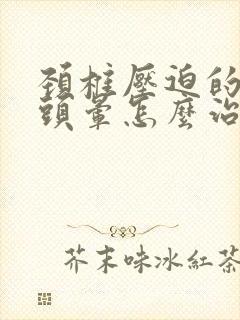 頚椎壓迫的
頭暈怎麼治
芥末味冰紅茶